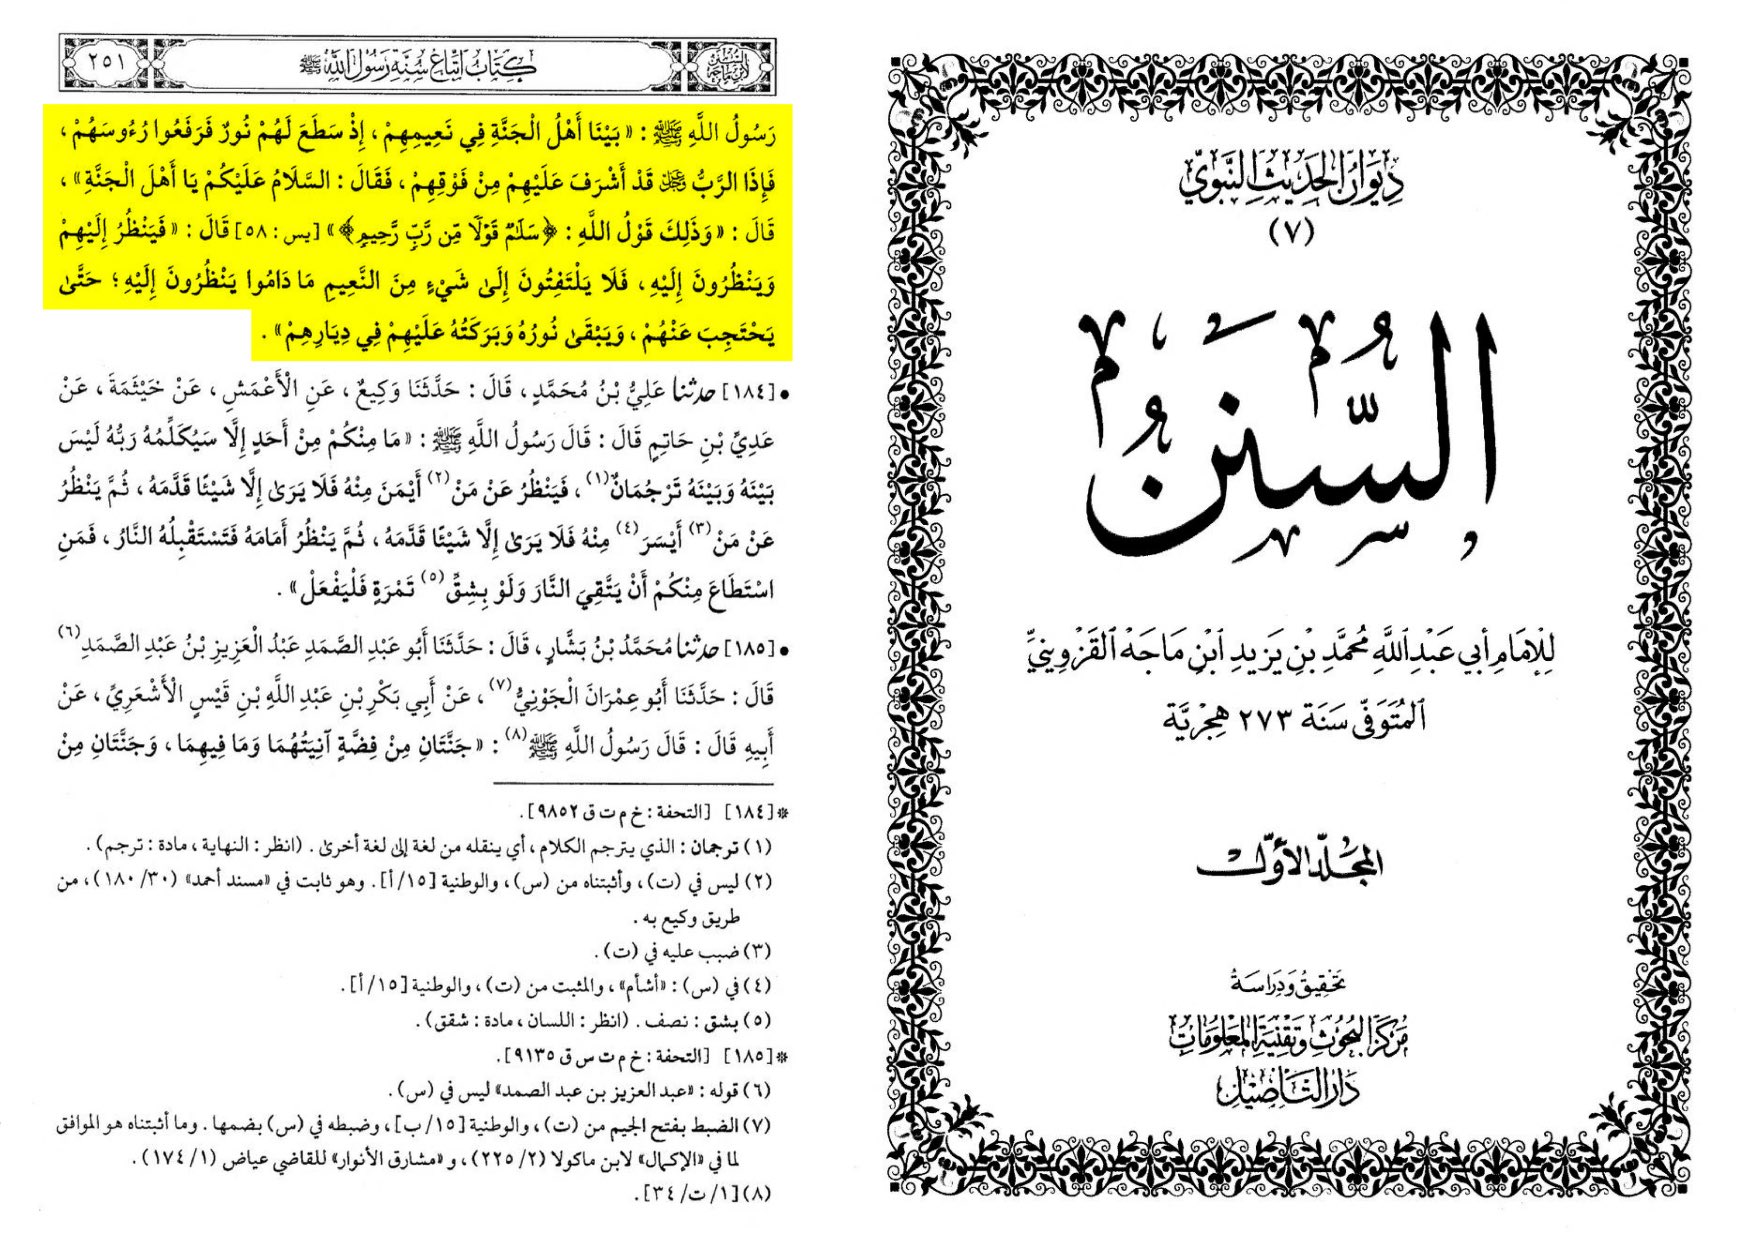 ديوان الحديث النبوي
(٧)
السُّنَن
لِلْإِمَامِ أَبِي عَبْدِ اللَّهِ مُحَمَّدِ بْنِ يَزِيدِ ابْنِ مَاجَهْ الْقَزْوِينِيِّ
الْمُتَوَفَّى سَنَة ٢٧٣ هِجْرِيَّة
المجلّد الأوّل
تحقيق ودراسة
مركز البحوث وتقنية المعلومات
دار التأصيل
كتاب اتباع سنة رسول الله ﷺ
٢٥١
رَسُولُ اللَّهِ ﷺ : «بَيْنَا أَهْلُ الْجَنَّةِ فِي نَعِيمِهِمْ ، إِذْ سَطَعَ لَهُمْ نُورٌ فَرَفَعُوا رُءُوسَهُمْ ،
فَإِذَا الرَّبُّ ﷻ قَدْ أَشْرَفَ عَلَيْهِمْ مِنْ فَوْقِهِمْ ، فَقَالَ : السَّلَامُ عَلَيْكُمْ يَا أَهْلَ الْجَنَّةِ» ،
قَالَ : «وَذَلِكَ قَوْلُ اللَّهِ : ﴿سَلَٰمٌ قَوْلًا مِّن رَّبٍّ رَّحِيمٍ﴾» [يس : ٥٨] قَالَ : «فَيَنْظُرُ إِلَيْهِمْ
وَيَنْظُرُونَ إِلَيْهِ ، فَلَا يَلْتَفِتُونَ إِلَى شَيْءٍ مِنَ النَّعِيمِ مَا دَامُوا يَنْظُرُونَ إِلَيْهِ ؛ حَتَّى
يَحْتَجِبَ عَنْهُمْ ، وَيَبْقَى نُورُهُ وَبَرَكَتُهُ عَلَيْهِمْ فِي دِيَارِهِمْ» .
• [١٨٤] حدثنا عَلِيُّ بْنُ مُحَمَّدٍ ، قَالَ : حَدَّثَنَا وَكِيعٌ ، عَنِ الْأَعْمَشِ ، عَنْ خَيْثَمَةَ ، عَنْ
عَدِيِّ بْنِ حَاتِمٍ قَالَ : قَالَ رَسُولُ اللَّهِ ﷺ : «مَا مِنْكُمْ مِنْ أَحَدٍ إِلَّا سَيُكَلِّمُهُ رَبُّهُ لَيْسَ
بَيْنَهُ وَبَيْنَهُ تَرْجُمَانٌ(١) ، فَيَنْظُرُ عَنْ مَنْ(٢) أَيْمَنَ مِنْهُ فَلَا يَرَى إِلَّا شَيْئًا قَدَّمَهُ ، ثُمَّ يَنْظُرُ
عَنْ مَنْ(٣) أَيْسَرَ(٤) مِنْهُ فَلَا يَرَى إِلَّا شَيْئًا قَدَّمَهُ ، ثُمَّ يَنْظُرُ أَمَامَهُ فَتَسْتَقْبِلُهُ النَّارُ ، فَمَنِ
اسْتَطَاعَ مِنْكُمْ أَنْ يَتَّقِيَ النَّارَ وَلَوْ بِشِقِّ(٥) تَمْرَةٍ فَلْيَفْعَلْ» .
• [١٨٥] حدثنا مُحَمَّدُ بْنُ بَشَّارٍ ، قَالَ : حَدَّثَنَا أَبُو عَبْدِ الصَّمَدِ عَبْدُ الْعَزِيزِ بْنُ عَبْدِ الصَّمَدِ(٦)
قَالَ : حَدَّثَنَا أَبُو عِمْرَانَ الْجَوْنِيُّ(٧) ، عَنْ أَبِي بَكْرِ بْنِ عَبْدِ اللَّهِ بْنِ قَيْسٍ الْأَشْعَرِيِّ ، عَنْ
أَبِيهِ قَالَ : قَالَ رَسُولُ اللَّهِ ﷺ(٨) : «جَنَّتَانِ مِنْ فِضَّةٍ آنِيَتُهُمَا وَمَا فِيهِمَا ، وَجَنَّتَانِ مِنْ
* [١٨٤] [التحفة : خ م ت ق ٩٨٥٢] .
(١) ترجمان : الذي يترجم الكلام ، أي ينقله من لغة إلى لغة أخرى . (انظر : النهاية ، مادة : ترجم) .
(٢) ليس في (ت) ، وأثبتناه من (س) ، والوطنية [١٥/ أ] . وهو ثابت في «مسند أحمد» (٣٠/ ١٨٠) ، من
طريق وكيع به .
(٣) ضبب عليه في (ت) .
(٤) في (س) : «أشأم» ، والمثبت من (ت) ، والوطنية [١٥/ أ] .
(٥) بشق : نصف . (انظر : اللسان ، مادة : شقق) .
* [١٨٥] [التحفة : خ م ت س ق ٩١٣٥] .
(٦) قوله : «عبد العزيز بن عبد الصمد» ليس في (س) .
(٧) الضبط بفتح الجيم من (ت) ، والوطنية [١٥/ ب] ، وضبطه في (س) بضمها . وما أثبتناه هو الموافق
لما في «الإكمال» لابن ماكولا (٢/ ٢٢٥) ، و«مشارق الأنوار» للقاضي عياض (١/ ١٧٤) .
(٨) [١/ ت/ ٣٤] .